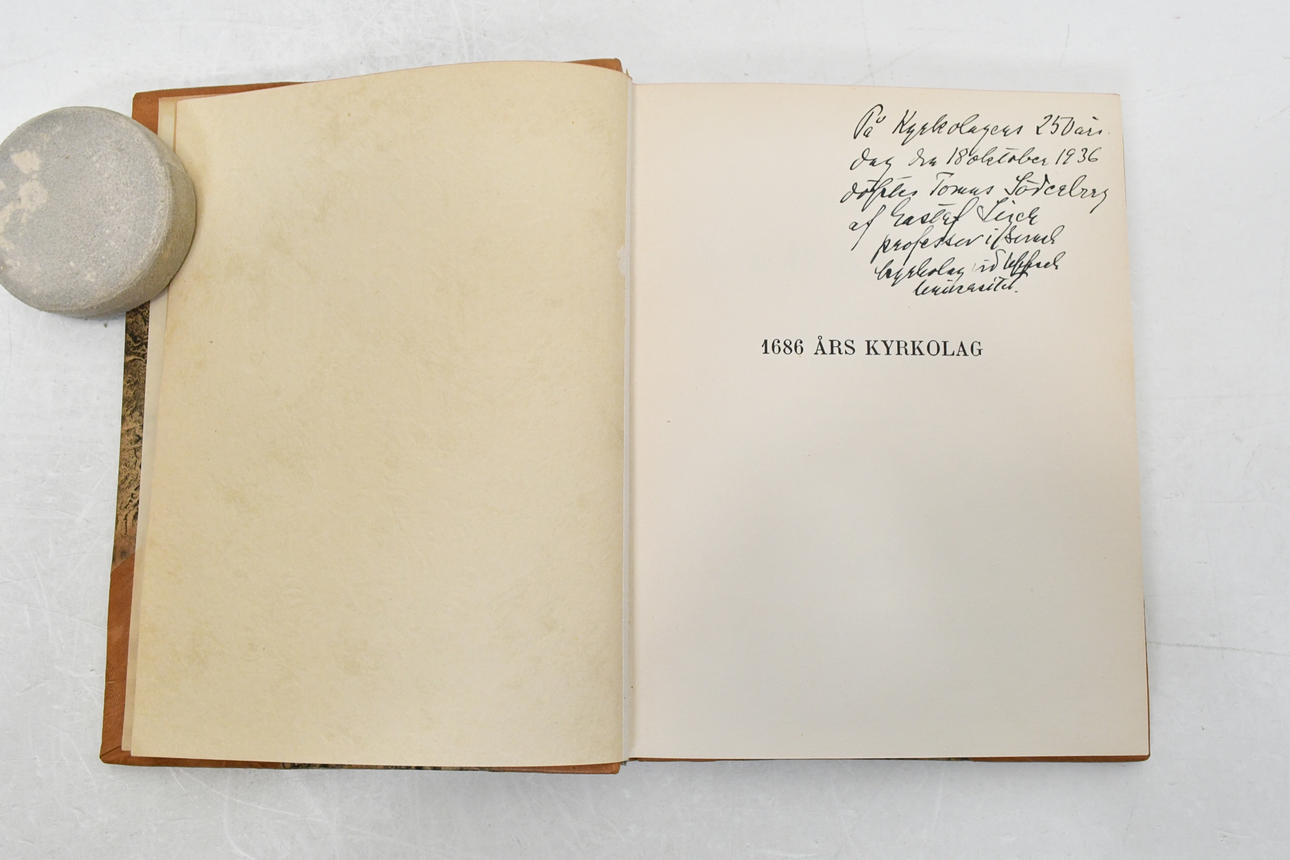 På Kyrkolagens 250 års
dag den 18 oktober 1936
döptes Tomas Söderberg
af Gustaf
professor i
kyrkolag vid Uppsala
Universitet.
1686 ÅRS KYRKOLAG